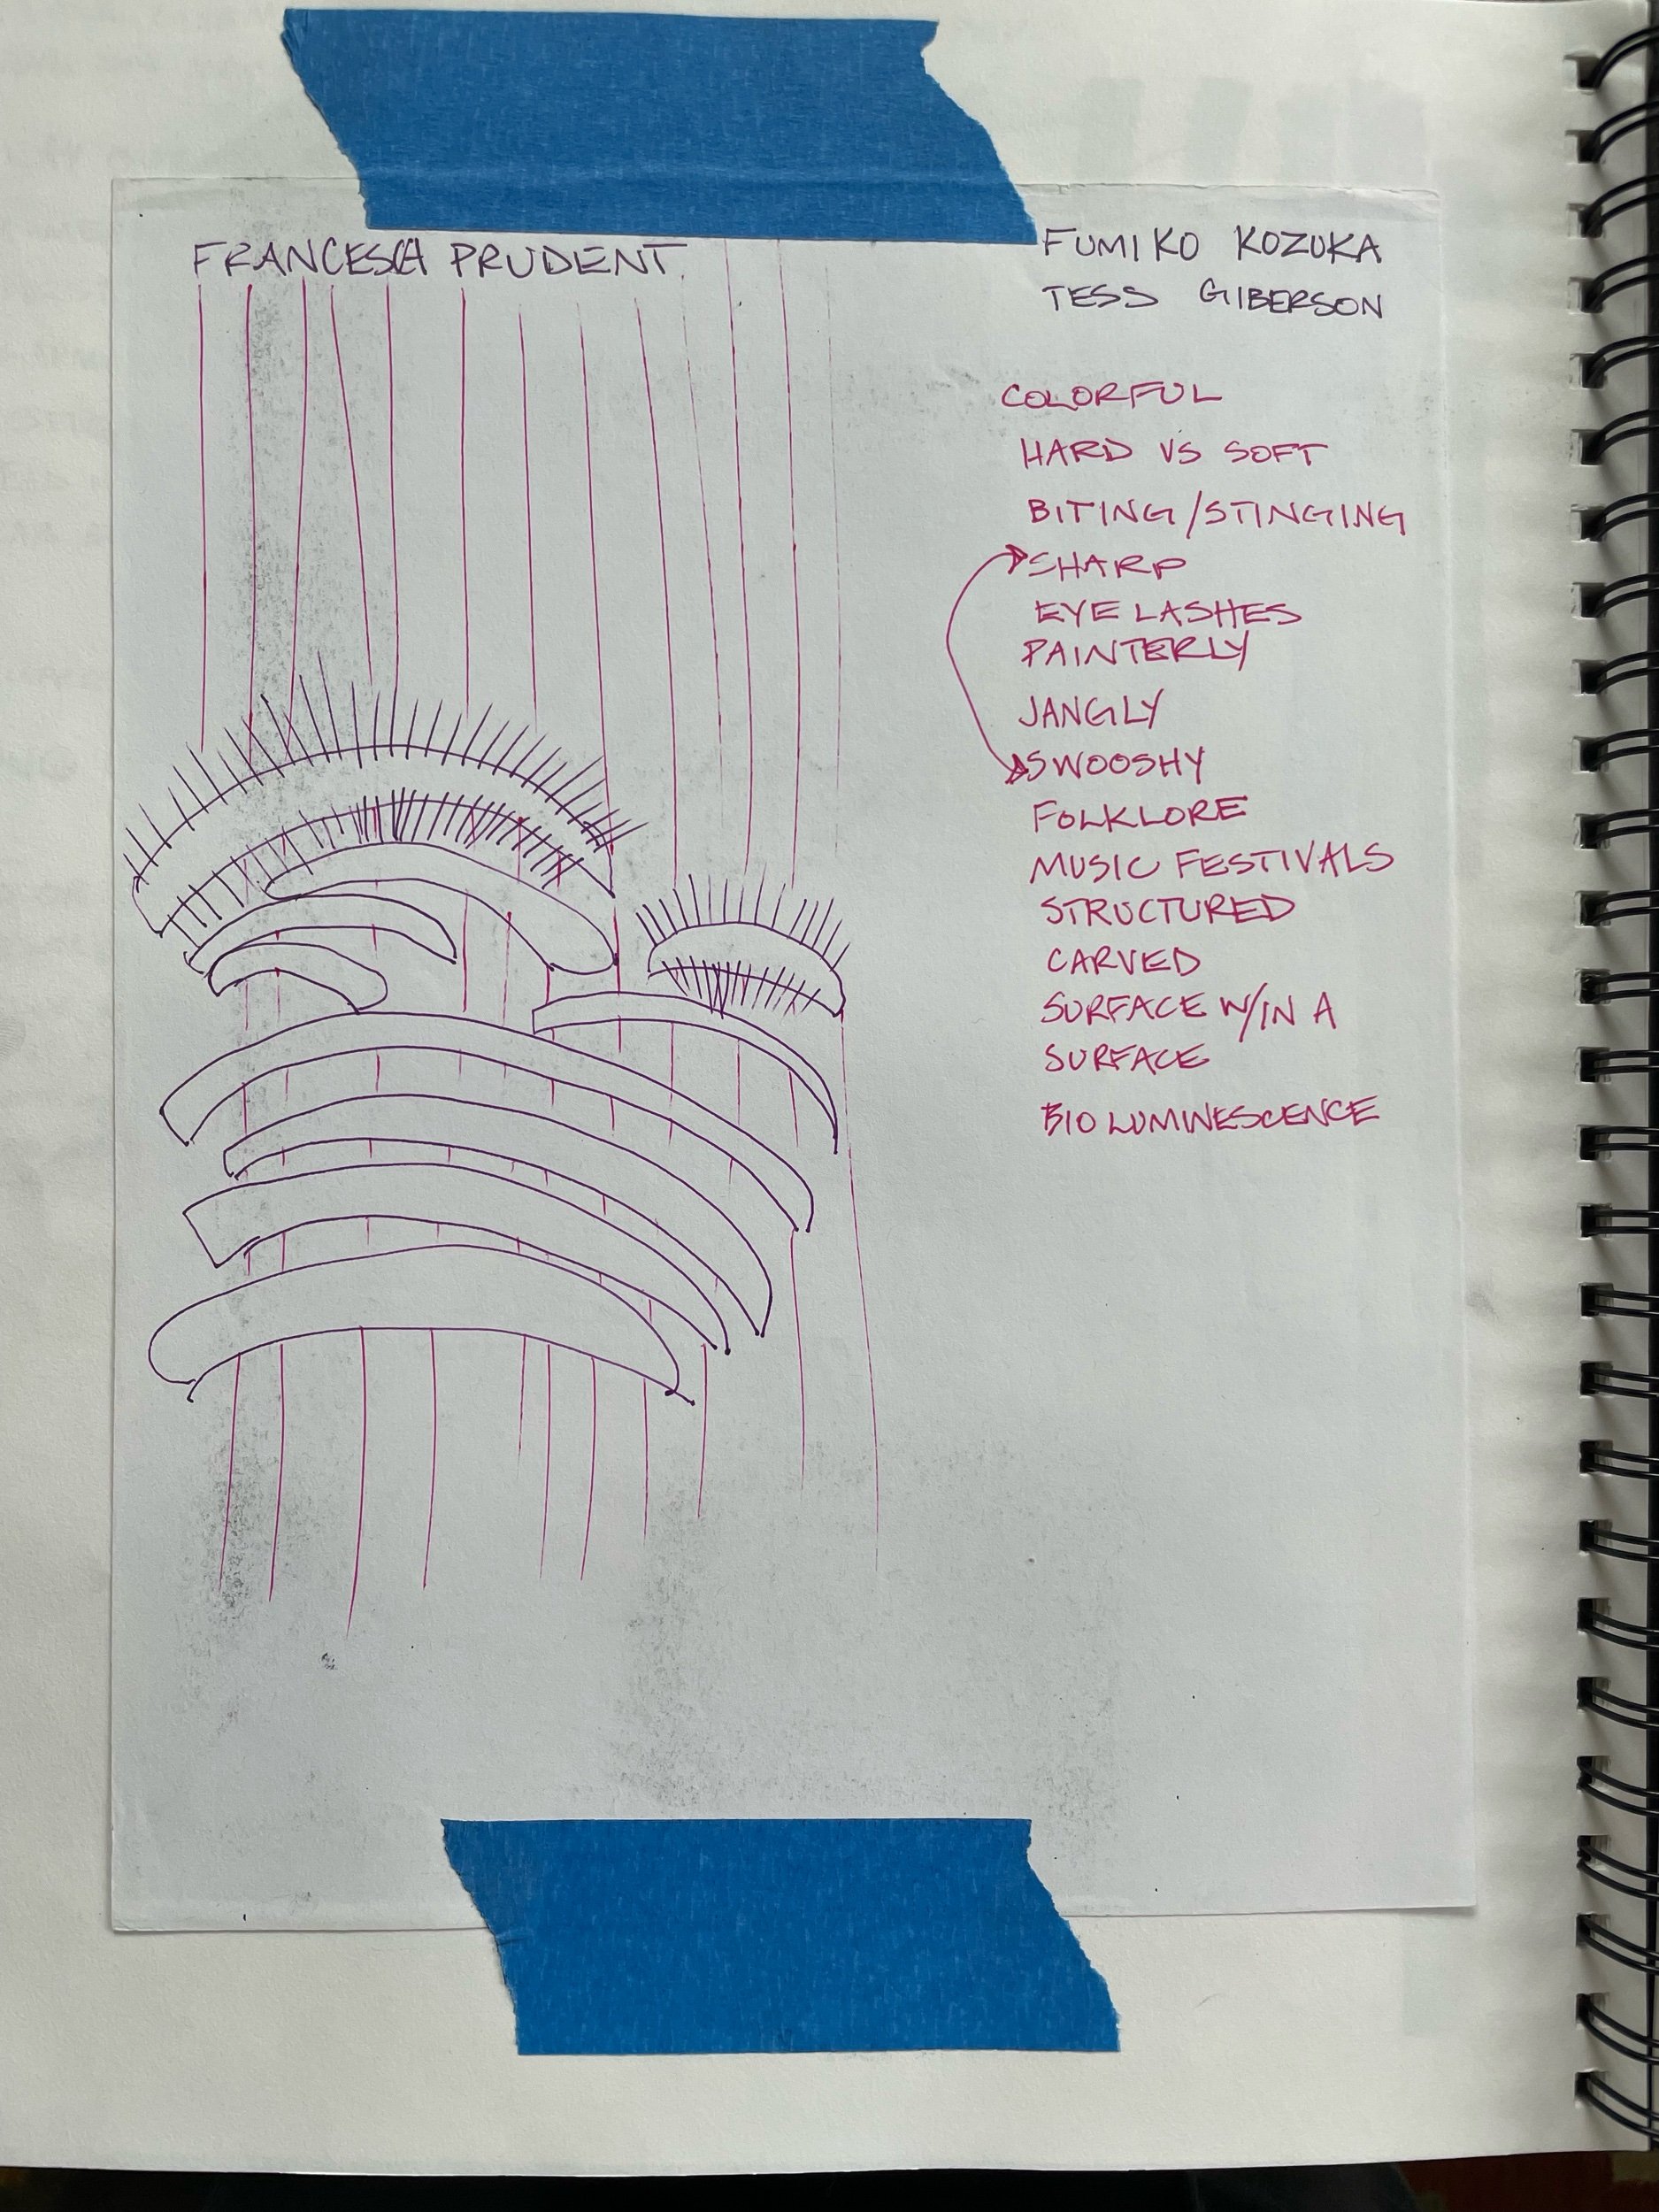 FRANCESCA PRUDENT
FUMIKO KOZUKA
TESS GIBERSON
COLORFUL
HARD VS SOFT
BITING/STINGING
SHARP
EYE LASHES
PAINTERLY
JANGLY
SWOOSHY
FOLKLORE
MUSIC FESTIVALS
STRUCTURED
CARVED
SURFACE W/IN A
SURFACE
BIO LUMINESCENCE